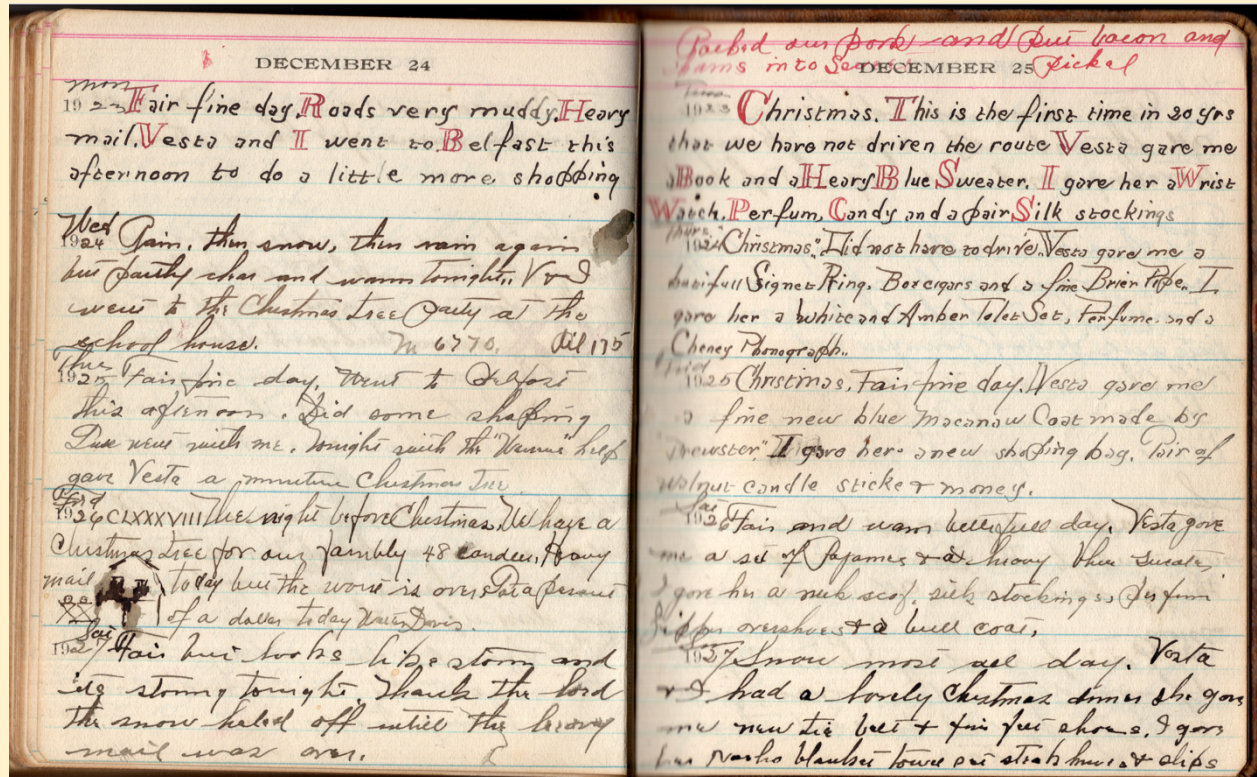 DECEMBER 24
Mon
1923 Fair fine day. Roads very muddy. Heavy
mail. Vesta and I went to Belfast this
afternoon to do a little more shopping
Wed
1924 Rain, then snow, then rain again
but partly clear and warm tonight. V and I
went to the Christmas tree party at the
school house. M 6770. Oil 175
Thur
1925 Fair fine day. Went to Belfast
this afternoon. Did some shopping
went with me. Tonight with the help
gave Vesta a miniature Christmas Tree
Frid
1926 CLXXXVIII The night before Christmas. We have a
Christmas tree for our fambly 48 candles. Heavy
mail today but the worst is over.
of a dollar today
Sat
1927 Fair but looks like storm and
its storming tonight. Thank the lord
the snow held off until the heavy
mail was over.
Packed our pork and put bacon and
hams into pickel
DECEMBER 25
Tues
1923 Christmas. This is the first time in 20 yrs
that we have not driven the route Vesta gave me
a Book and a Heavy Blue Sweater. I gave her a Wrist
Watch, Perfum, Candy and a pair Silk stockings
Thurs
1924 "Christmas". Did not have to drive. Vesta gave me a
Signet Ring. Box cigars and a fine Brier Pipe. I
gave her a white and Amber Tolet Set, Perfume. and a
Cheney Phonograph..
Frid
1925 Christmas. Fair fine day. Vesta gave me
a fine new blue Macanaw Coat made by
I gave her a new shoping bag. Pair of
walnut candle sticks & money.
Sat
1926 Fair and warm day. Vesta gave
me a set of Pajamas & a heavy blue sweater
I gave her a neck scof, silk stockings, perfum
Zipper overshoes & a coat.
1927 Snow most all day. Vesta
& I had a lovely Christmas dinner she gave
me new tie belt + shoes. I gave
her blanket & slips